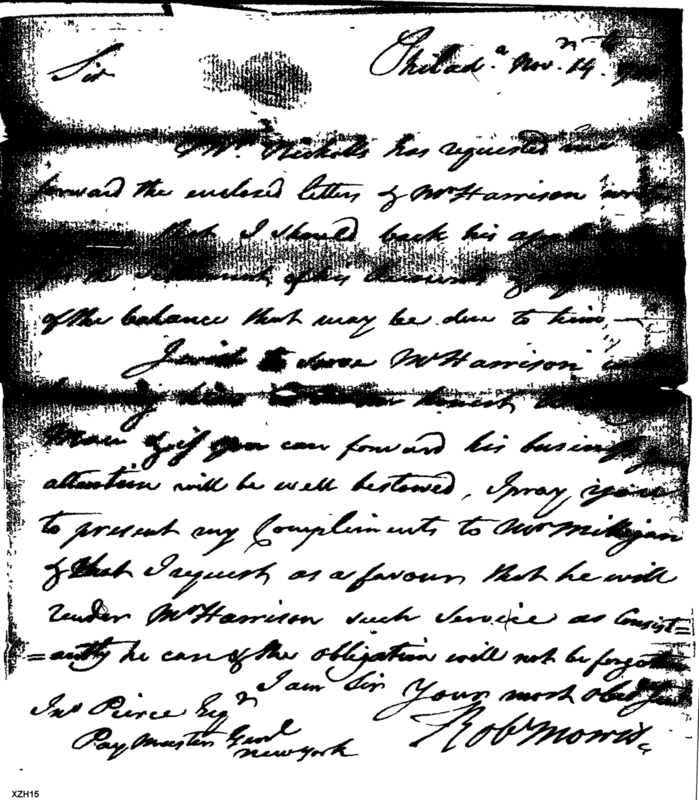 Philad.a Nov.r 14.th
Sir
Mr. Nicholls has requested me
forward the enclosed letters of Mr Harrison
that I should back his
of his
of the balance that may be due to him
I wish to serve Mr Harrison
honest
Man & if you can forward his business
attention will be well bestowed, I pray you
to present my Compliments to Mr Milligan
& that I request as a favour that he will
render Mr Harrison such service as Consist=
=antly he can & the obligation will not be forgotten
I am Sir Your most obed Serv
Jno Pierce Esqr
Pay Master Genl
New York
Robt Morris
XZH15